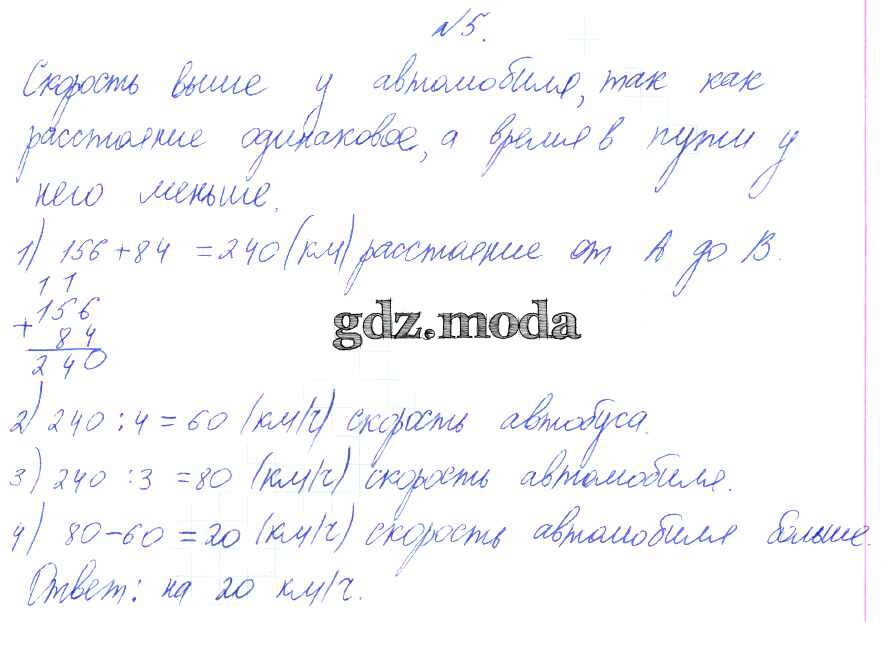 №5.
Скорость выше у автомобиля, так как
расстояние одинаковое, а время в пути у
него меньше.
1) 156+84 =240 (км) расстояние от А до В.
11
156
+ 84
240
gdz.moda
2) 240 : 4 = 60 (км/ч) скорость автобуса.
3) 240 :3 =80 (км/ч) скорость автомобиля.
4) 80-60 =20 (км/ч) скорость автомобиля больше.
Ответ: на 20 км/ч.